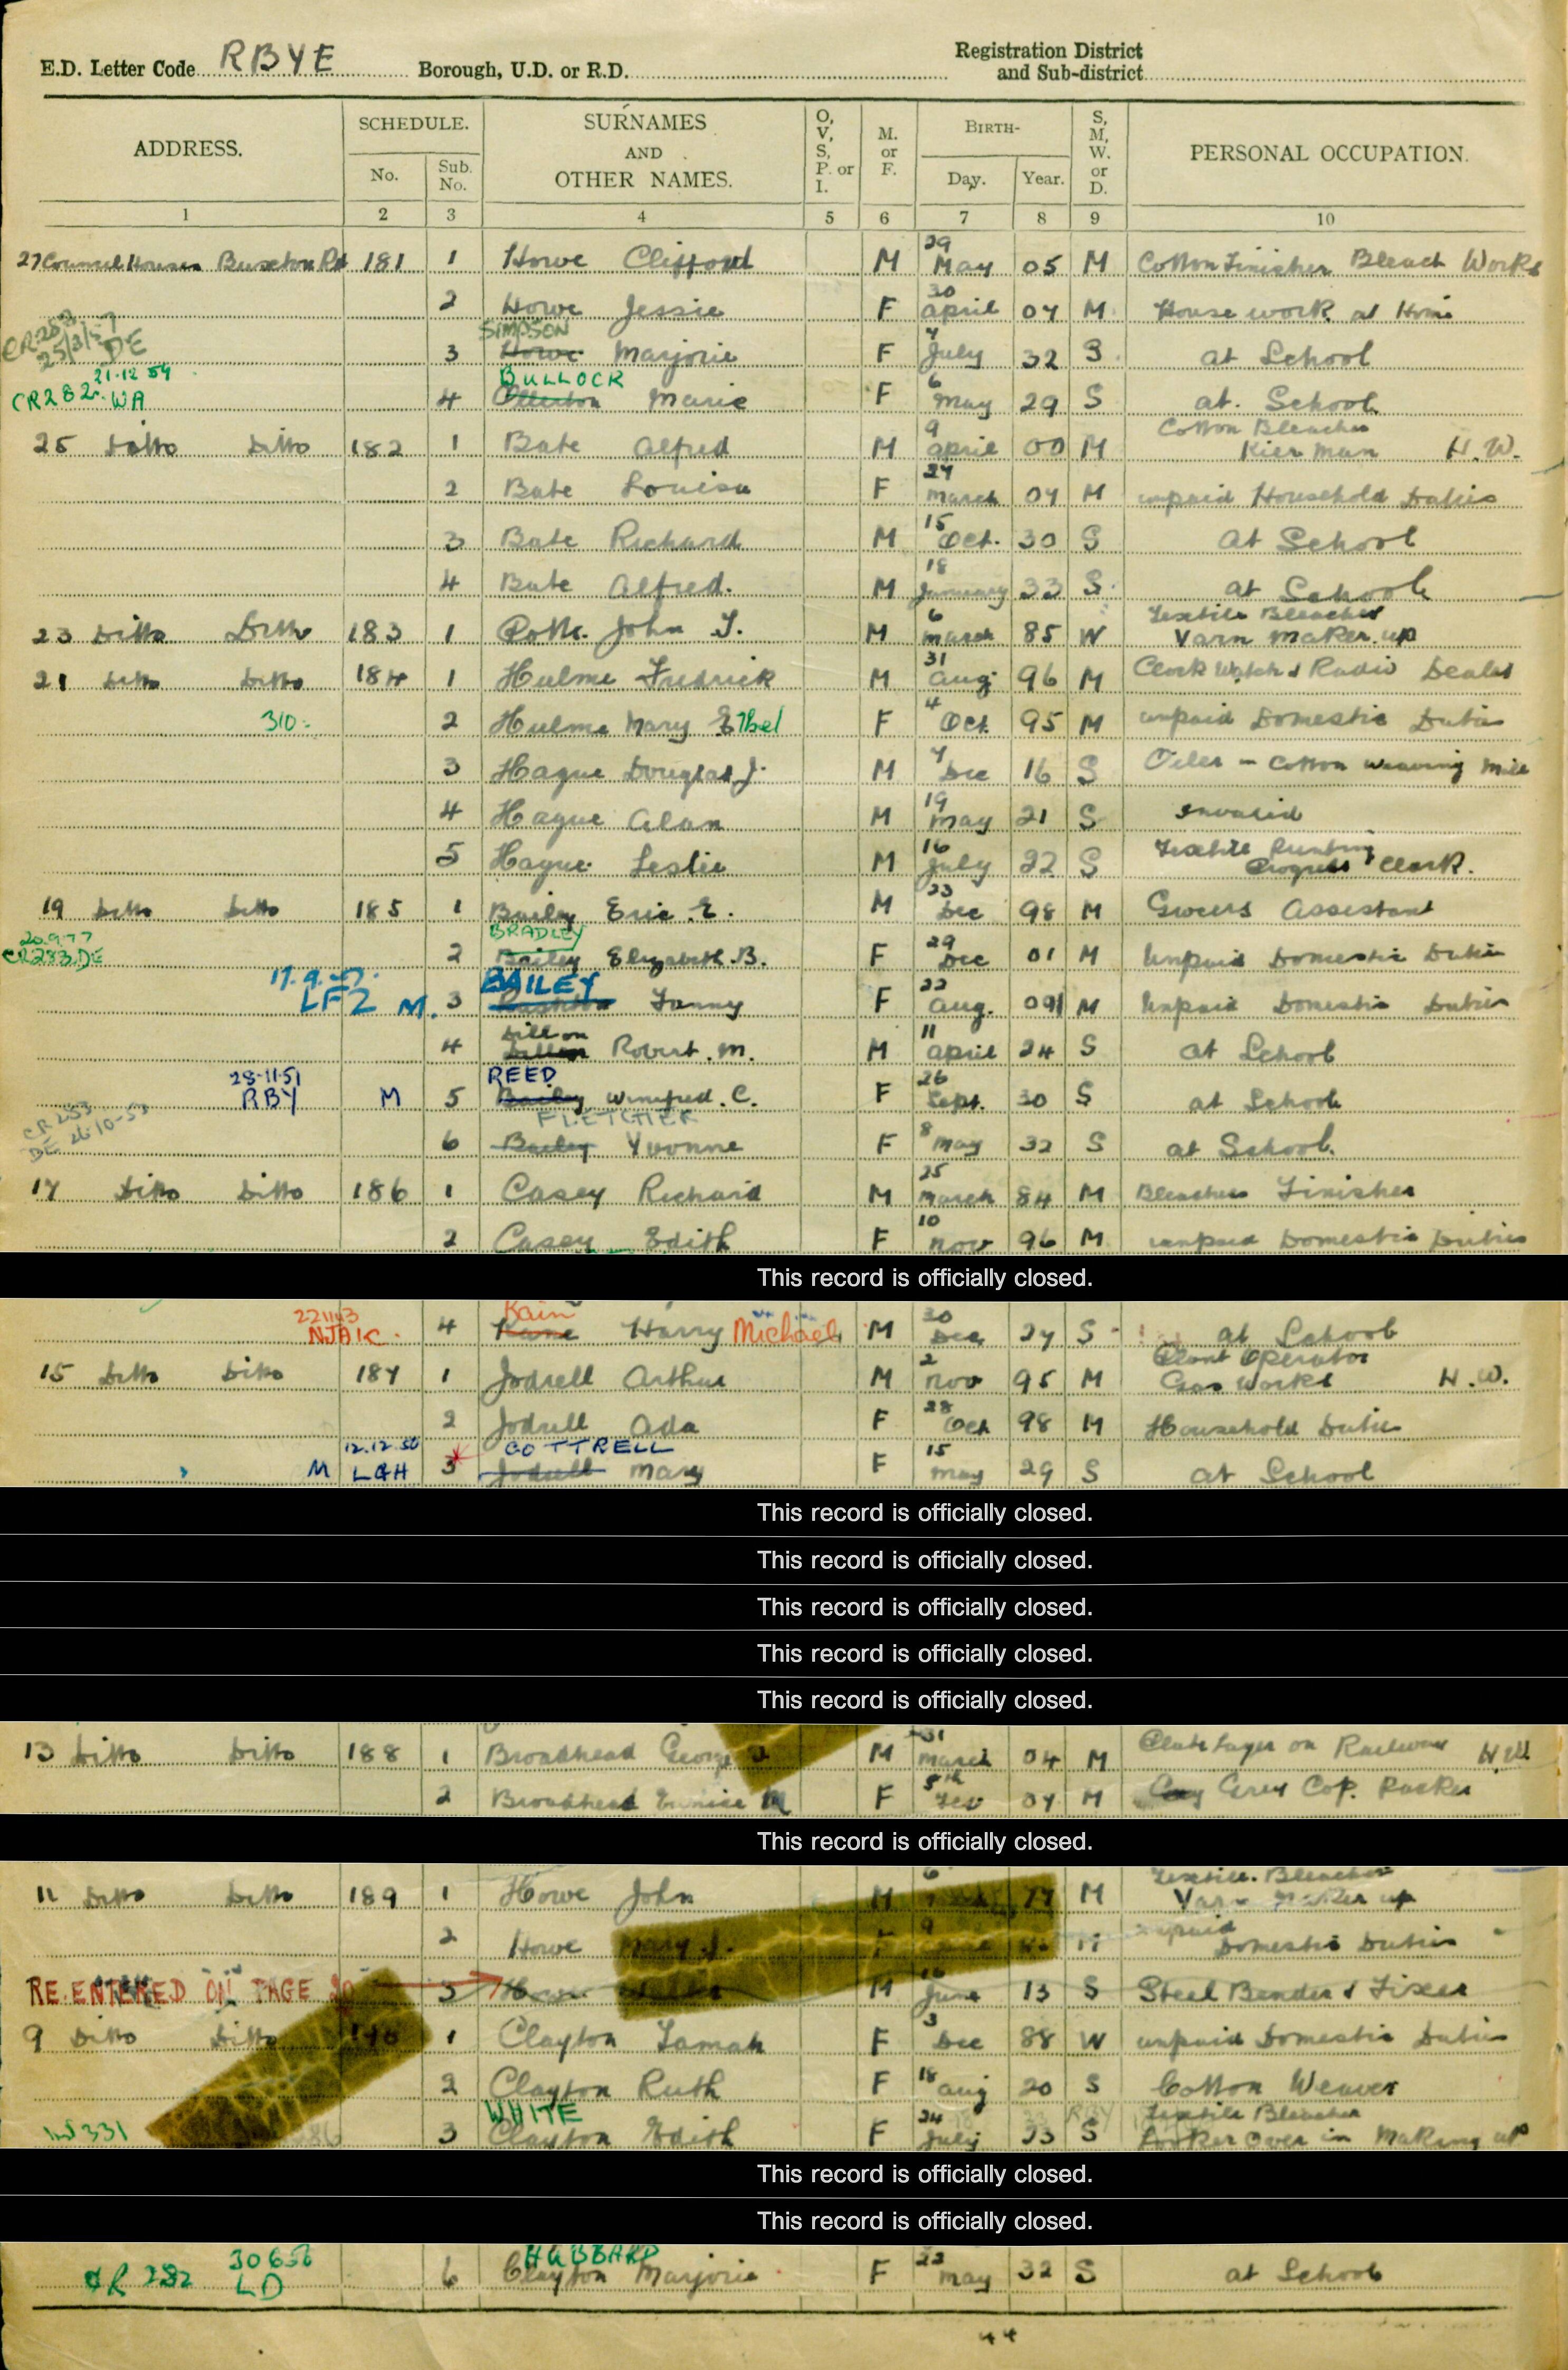 E.D. Letter Code RBYE Borough, U.D. or R.D. Registration District and Sub-district
ADDRESS. SCHEDULE. No. Sub. No. SURNAMES AND OTHER NAMES. O, V, S, P. or I. M. or F. BIRTH- Day. Year. S, M, W. or D. PERSONAL OCCUPATION.
1 2 3 4 5 6 7 8 9 10
27 Council Houses Buxton Rd 181 1 Howe Clifford M 29 May 05 M Cotton Finisher Bleach Works
2 Howe Jessie F 30 April 07 M House work at Home
CR283 25/3/57 DE 3 SIMPSON Howe Marjorie F 4 July 32 S at School
CR282 21.12.54 WA 4 BULLOCK Marie F 6 May 29 S at School
25 Ditto Ditto 182 1 Bate Alfred M 9 April 00 M Cotton Bleacher Kier Man H.W.
2 Bate Louisa F 27 March 07 M unpaid Household Duties
3 Bate Richard M 15 Oct. 30 S at School
4 Bate Alfred. M 18 January 33 S at School
23 Ditto Ditto 183 1 Potts. John T. M 6 March 85 W Textile Bleacher Yarn Maker up
21 Ditto Ditto 184 1 Hulme Fredrick M 31 Aug 96 M Clock Watch & Radio Dealer
310 2 Hulme Mary Ethel F 4 Oct 95 M unpaid Domestic Duties
3 Hague Douglas J. M 7 Dec 16 S Oiler - Cotton Weaving Mill
4 Hague Alan M 19 May 21 S Invalid
5 Hague Leslie M 16 July 22 S Textile Printing Progress Clerk.
19 Ditto Ditto 185 1 Bailey Eric E. M 23 Dec 98 M Grocers Assistant
20.9.77 CR283 DE 2 BRADLEY Bailey Elizabeth B. F 29 Dec 01 M Unpaid Domestic Duties
LFZ M. 3 BAILEY Fanny F 22 Aug. 09 M Unpaid Domestic Duties
4 Dillon Robert. M. M 11 April 24 S at School
28-11-51 RBY M 5 REED Bailey Winifred. C. F 26 Sept. 30 S at School
CR283 DE 26-10-53 6 FLETCHER Bailey Yvonne F 8 May 32 S at School.
17 Ditto Ditto 186 1 Casey Richard M 25 March 84 M Bleachers Finisher
2 Casey Edith F 10 Nov 96 M unpaid Domestic Duties
This record is officially closed.
NJAK 4 Kain Kane Harry Michael M 30 Dec 27 S at School
15 Ditto Ditto 187 1 Jodrell Arthur M 2 Nov 95 M Plant Operator Gas Works H.W.
2 Jodrell Ada F 28 Oct 98 M Household Duties
M 12.12.50 LGH 3 COTTRELL Jodrell Mary F 15 May 29 S at School
This record is officially closed.
This record is officially closed.
This record is officially closed.
This record is officially closed.
This record is officially closed.
13 Ditto Ditto 188 1 Broadhead George J M 31 March 04 M Plate Layer on Railway H.W
2 Broadhead Eunice M F 8th Feb 07 M Grey Cop. Packer
This record is officially closed.
11 Ditto Ditto 189 1 Howe John M 6 77 M Textile. Bleacher Yarn Maker up
2 Howe Mary J. F 9 M unpaid Domestic Duties
RE-ENTERED ON PAGE 20 3 M 16 June 13 S Steel Bender & Fixer
9 Ditto Ditto 190 1 Clayton Tamah F 3 Dec 88 W unpaid Domestic Duties
2 Clayton Ruth F 18 Aug 20 S Cotton Weaver
331 3 WHITE Clayton Edith F 24 July 23 S Textile Bleacher Looker over in Making up
This record is officially closed.
This record is officially closed.
CR 282 30656 LD 6 HUBBARD Clayton Marjorie F 22 May 32 S at School